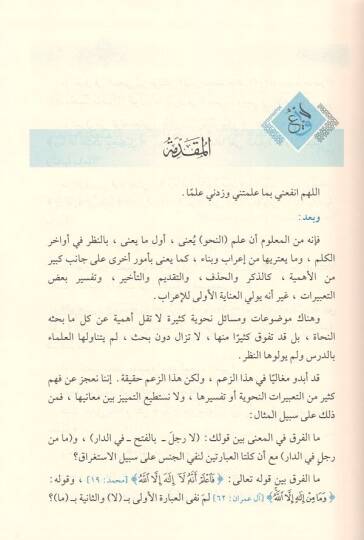 المقدمة
اللهم انفعني بما علمتني وزدني علمًا.
وبعد:
فإنه من المعلوم أن علم (النحو) يُعنى، أول ما يعنى، بالنظر في أواخر
الكلم، وما يعتريها من إعراب وبناء، كما يعنى بأمور أخرى على جانب كبير
من الأهمية، كالذكر والحذف، والتقديم والتأخير، وتفسير بعض
التعبيرات، غير أنه يولي العناية الأولى للإعراب.
وهناك موضوعات ومسائل نحوية كثيرة لا تقل أهمية عن كل ما بحثه
النحاة، بل قد تفوق كثيرًا منها، لا تزال دون بحث، لم يتناولها العلماء
بالدرس ولم يولوها النظر.
قد أبدو مغاليًا في هذا الزعم، ولكن هذا الزعم حقيقة. إننا نعجز عن فهم
كثير من التعبيرات النحوية أو تفسيرها، ولا نستطيع التمييز بين معانيها، فمن
ذلك على سبيل المثال:
ما الفرق في المعنى بين قولك: (لا رجلَ ـ بالفتح ـ في الدار)، و(ما من
رجلٍ في الدار) مع أن كلتا العبارتين لنفي الجنس على سبيل الاستغراق؟
ما الفرق بين قوله تعالى: ﴿فَاعْلَمْ أَنَّهُ لَا إِلَٰهَ إِلَّا اللَّهُ﴾ [محمد: ١٩]، وقوله:
﴿وَمَا مِنْ إِلَٰهٍ إِلَّا اللَّهُ﴾ [آل عمران: ٦٢] لمَ نفى العبارة الأولى بـ(لا) والثانية بـ(ما)؟